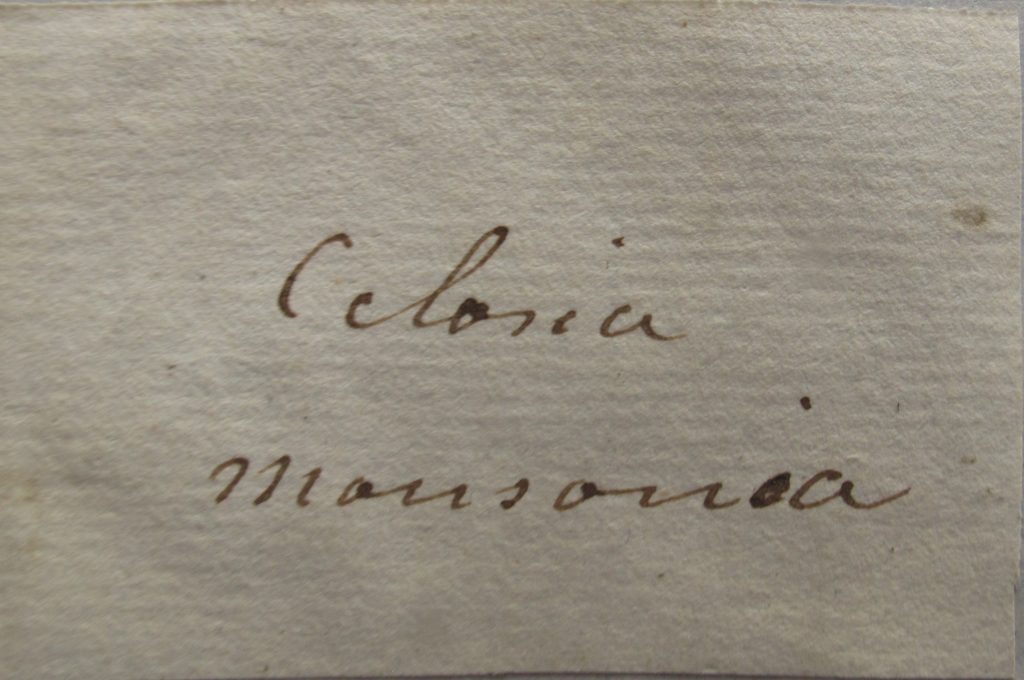 Celosia
monsonia